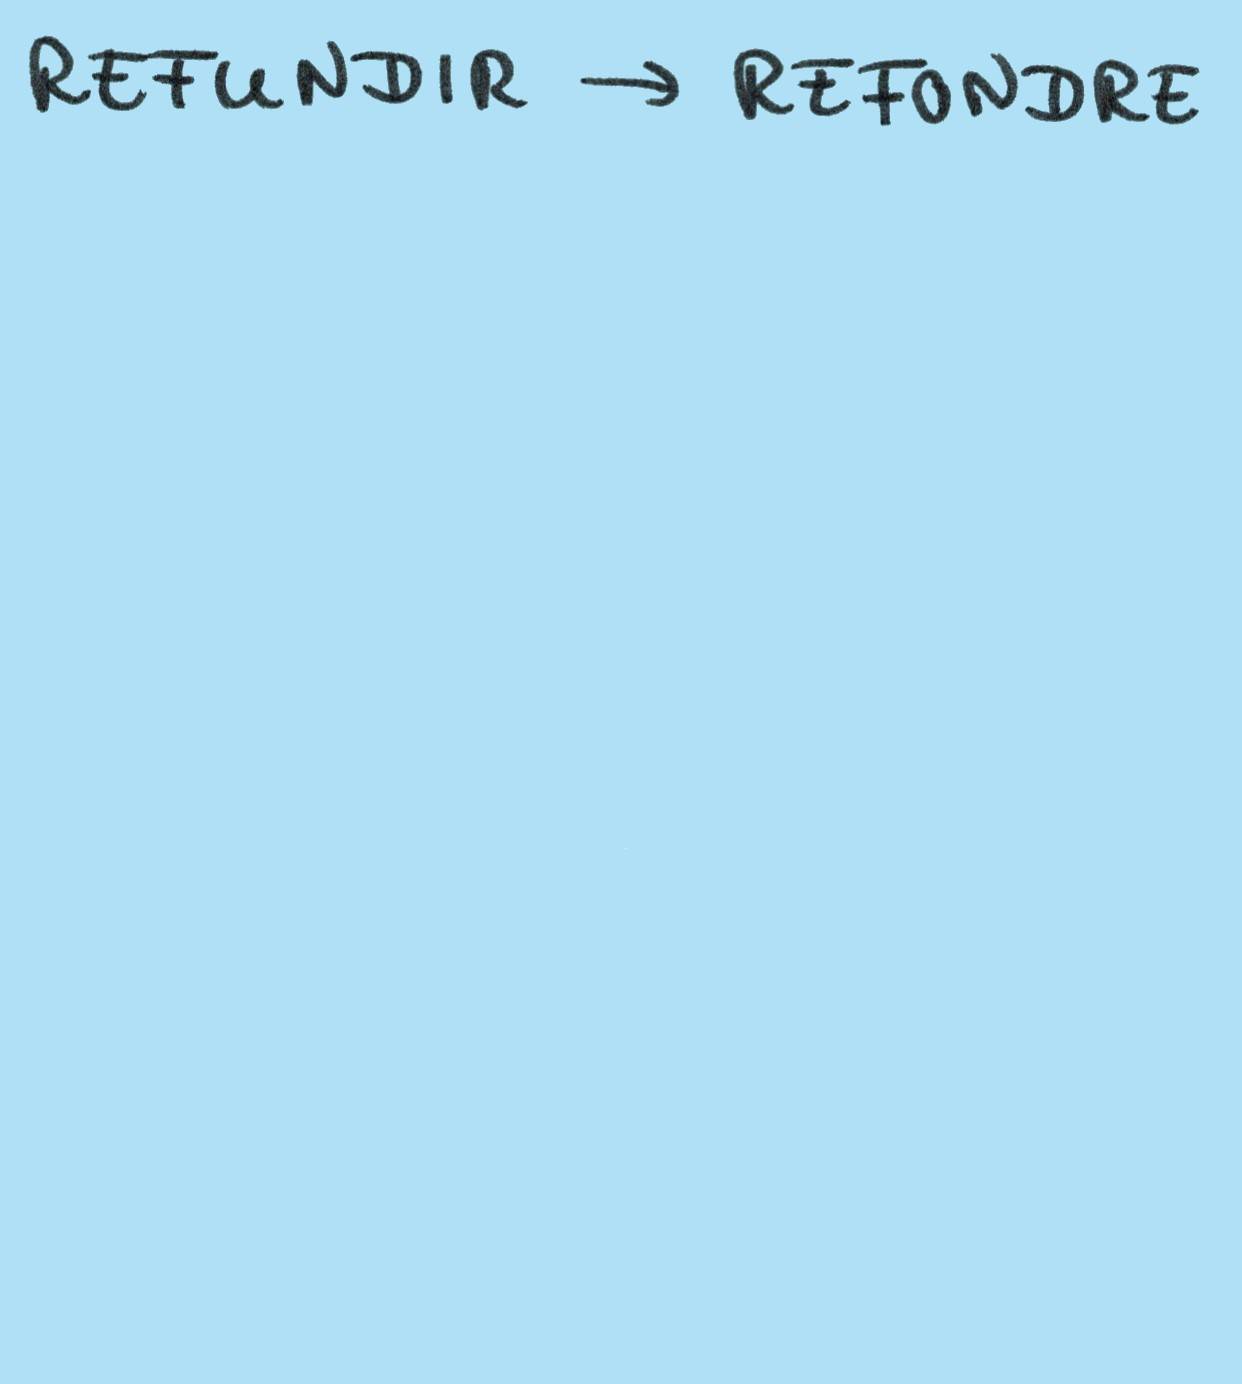 REFUNDIR → REFONDRE